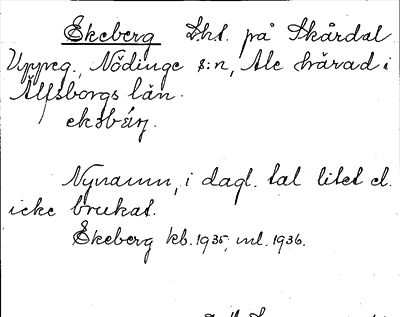 Ekeberg Lht. på Skårdal
Uppreg., Nödinge s:n, Ale härad i
Älfsborgs län.
Nynamn, i dagl. tal litet el.
icke brukat.
Ekeberg kb. 1935, ml. 1936.